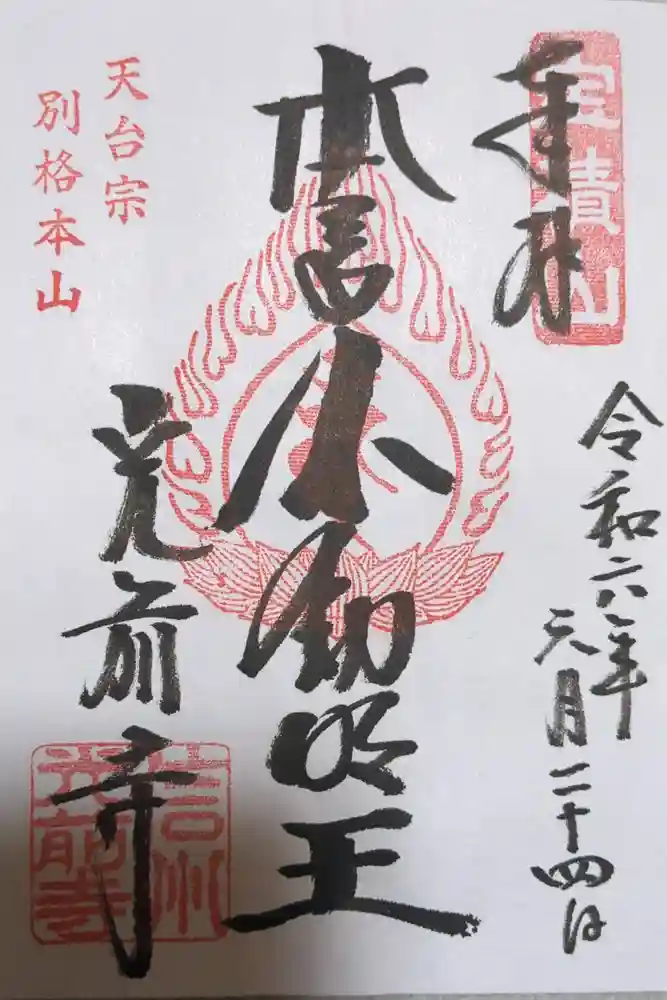 奉拝
宝積山
令和六年
三月二十四日
本尊不動明王
天台宗
別格本山
光前寺
信州
光前寺